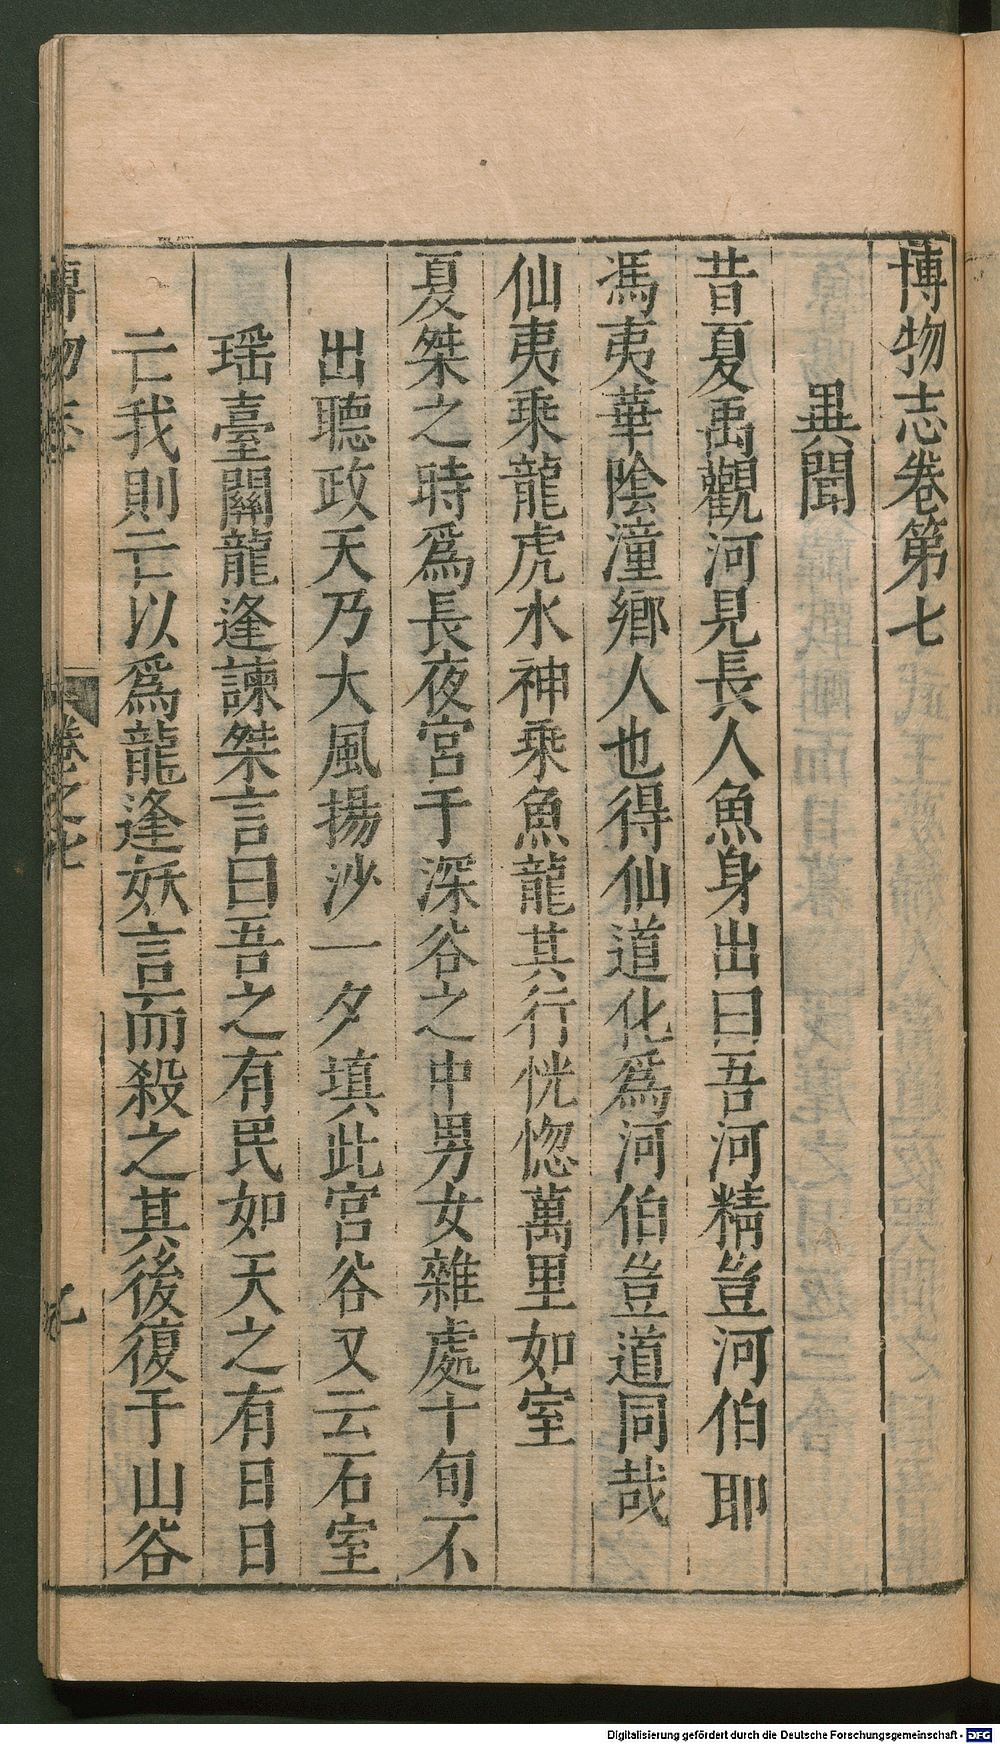 博物志卷第七
異聞
昔夏禹觀河見長人魚身出曰吾河精豈河伯耶
馮夷華陰潼鄉人也得仙道化爲河伯豈道同哉
仙夷乘龍虎水神乘魚龍其行恍惚萬里如室
夏桀之時爲長夜宮于深谷之中男女雜處十旬不
出聽政天乃大風揚沙一夕填此宮谷又云石室
瑶臺關龍逢諫桀言曰吾之有民如天之有日日
亡我則亡以爲龍逢妖言而殺之其後復于山谷
博物志
卷之七
Digitalisierung gefördert durch die Deutsche Forschungsgemeinschaft - DFG